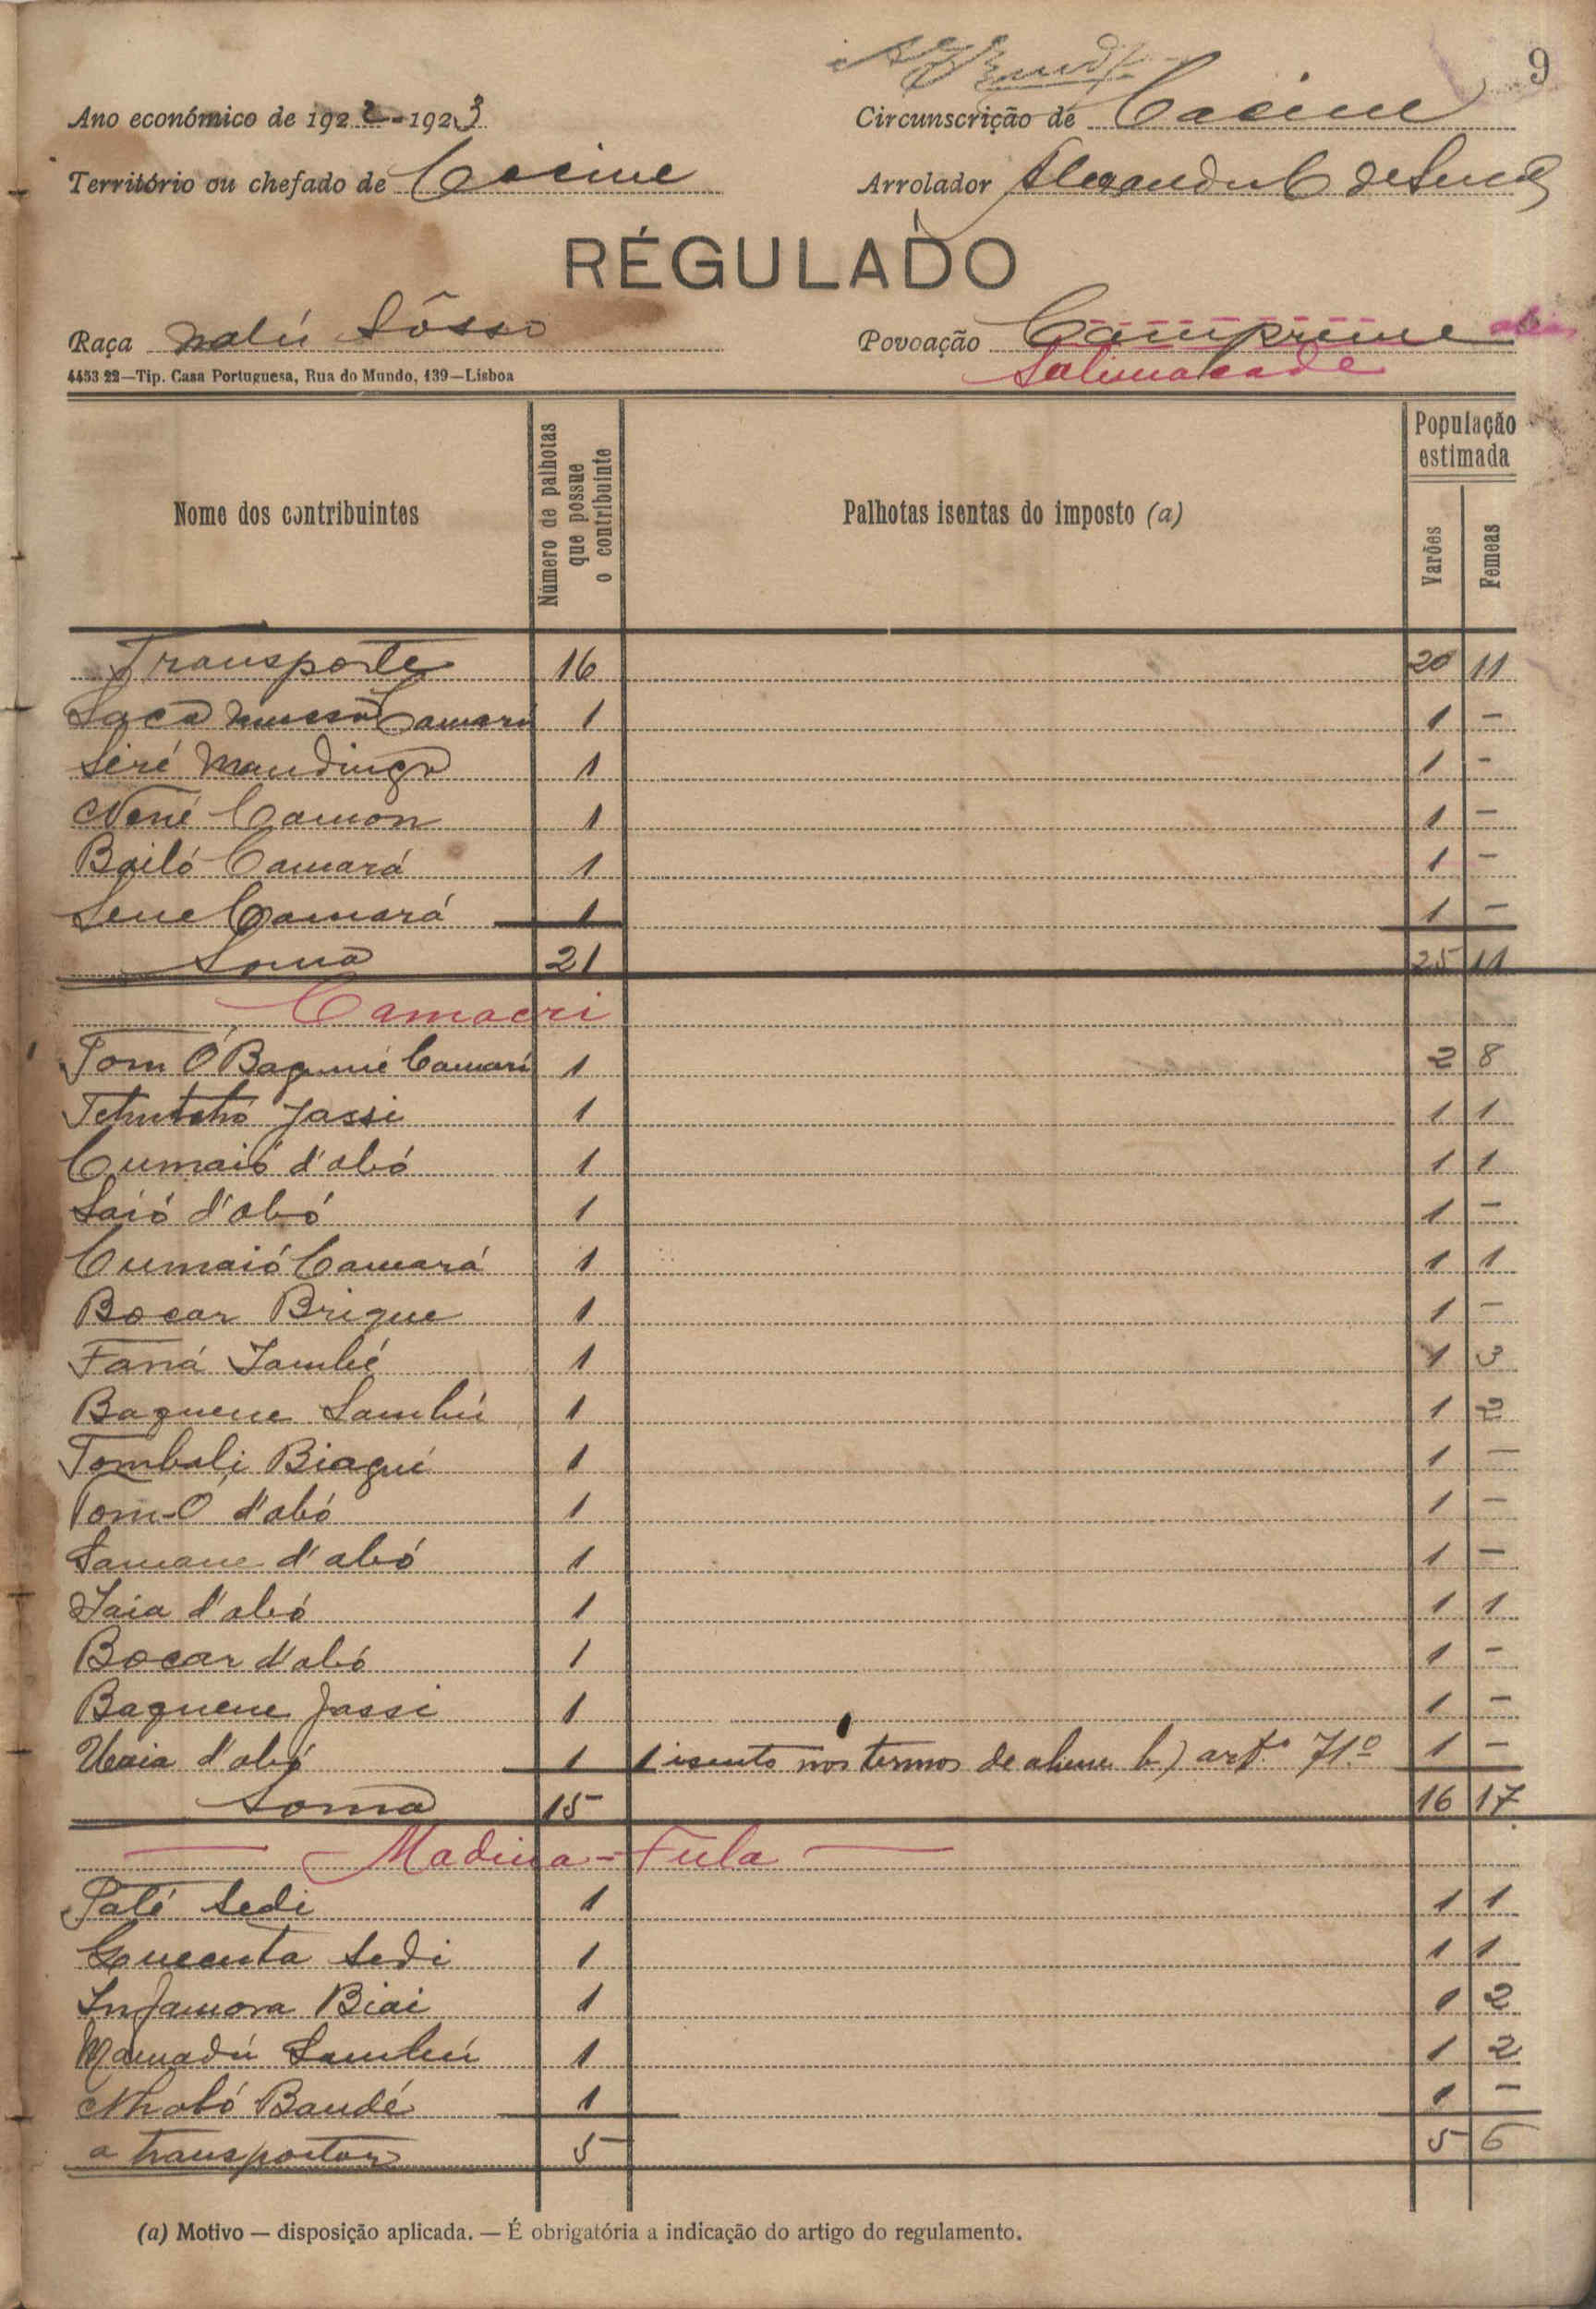 9
Ano económico de 1922-1923
Circunscrição de Cacine
Território ou chefado de Cacine
Arrolador Alexandre C de
RÉGULADO
Raça Nalú Sôsso
Povoação Camprene
Salimacade
4453-22—Tip. Casa Portuguesa, Rua do Mundo, 139—Lisboa
Nome dos contribuintes
Número de palhotas que possue o contribuinte
Palhotas isentas do imposto (a)
População estimada
Varões
Femeas
Transporte 16 20 11
Laca Mussá Camará 1 1 -
Siré Mandinga 1 1 -
Nené Camon 1 1 -
Bailó Camará 1 1 -
Sene Camará 1 1 -
Soma 21 25 11
Camacri
Tom Ó Baguné Camará 1 2 8
Jassi 1 1 1
Cumaió d'abó 1 1 1
Saió d'abó 1 1 -
Cumaió Camará 1 1 1
Bocar Brique 1 1 -
Faná Sambú 1 1 3
Baguene Sambú 1 1 2
Tombali Biagui 1 1 -
Tom-Ó d'abó 1 1 -
Samane d'abó 1 1 -
Iaia d'abó 1 1 1
Bocar d'abó 1 1 -
Baguene Jassi 1 1 -
d'abó 1 1 isento nos termos de alinea b) artº 71º 1 -
Soma 15 16 17
— Madina-Fula —
Paté Sedi 1 1 1
Quecuta Sedi 1 1 1
Infamora Biai 1 1 2
Mamadú Sambú 1 1 2
Nhabó Baudé 1 1 -
a transportar 5 5 6
(a) Motivo — disposição aplicada. — É obrigatória a indicação do artigo do regulamento.